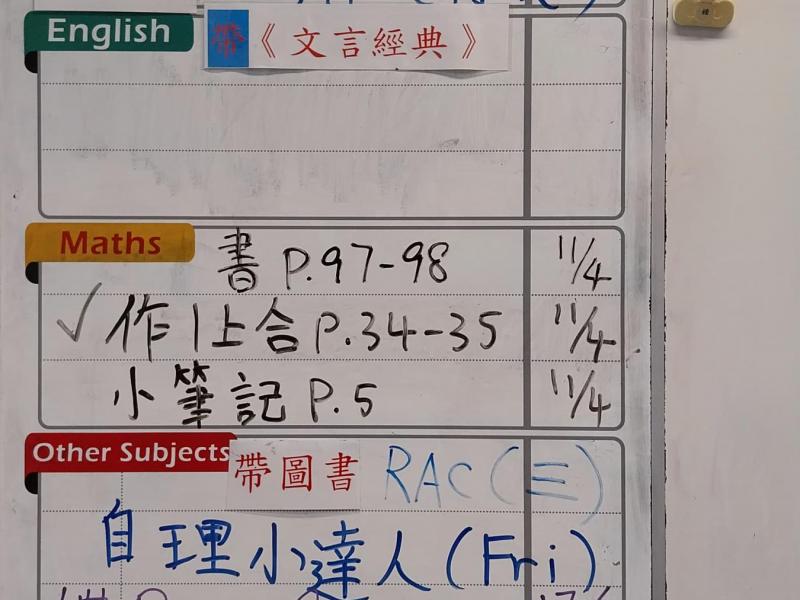 English
帶《文言經典》
Maths
書 P.97-98 11/4
✓ 作1上合 P.34-35 11/4
小筆記 P.5 11/4
Other Subjects
帶圖書 RAC(三)
自理小達人(Fri)